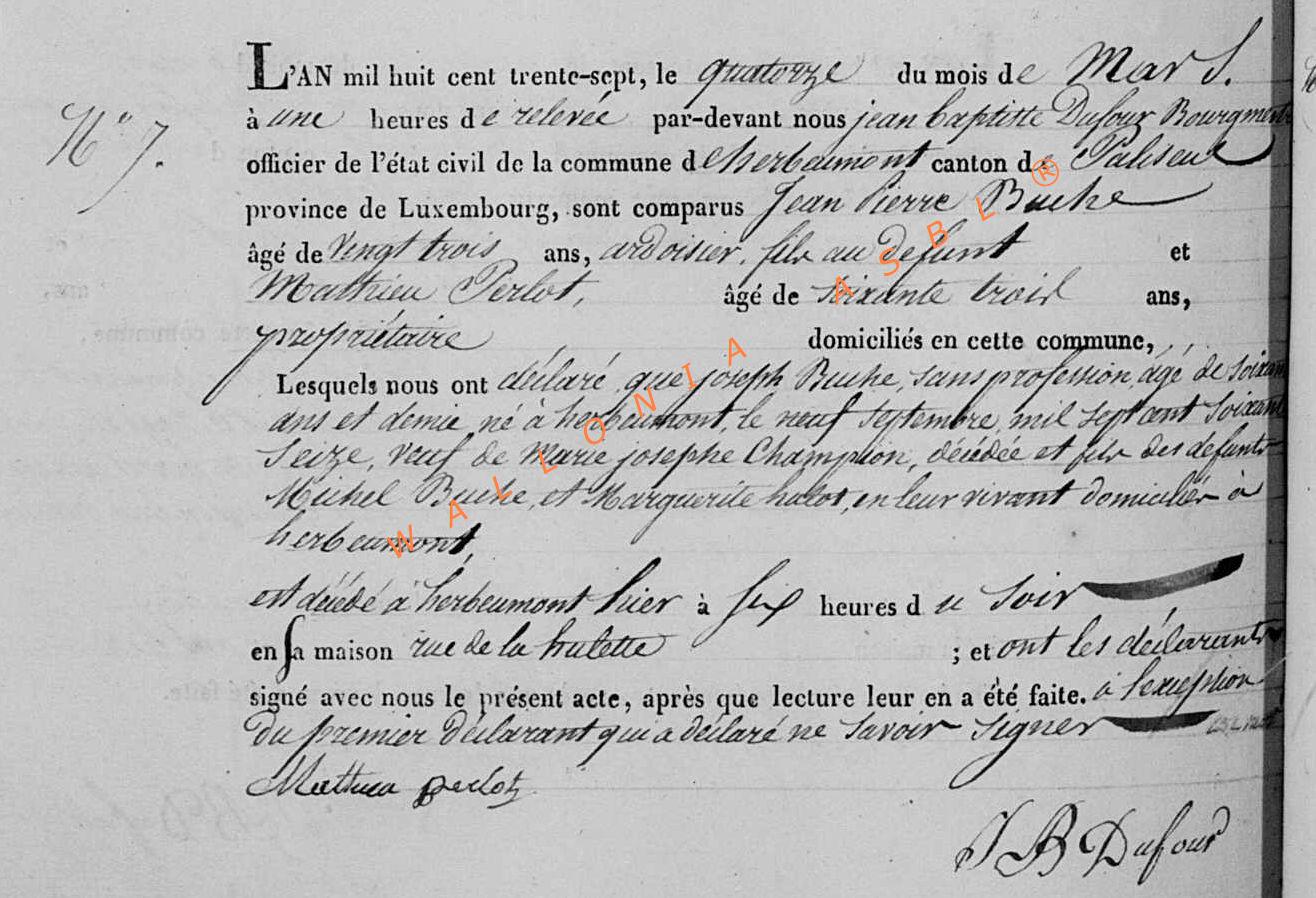 N° 7.
L'AN mil huit cent trente-sept, le quatorze du mois de Mars.
à une heures de relevée par-devant nous jean baptiste Dufour Bourgmestre
officier de l'état civil de la commune d'herbeumont canton de Paliseul
province de Luxembourg, sont comparus Jean Pierre Buche
âgé de Vingt trois ans, ardoisier, fils au defunt et
Mathieu Perlot, âgé de soixante trois ans,
propriétaire domiciliés en cette commune,
Lesquels nous ont déclaré que joseph Buche, sans profession, âgé de soixante
ans et demie né à herbeumont, le neuf Septembre, mil sept cent soixante
Seize, veuf de Marie josephe Champion, décédée et fils des defunts
Michel Buche, et Marguerite hulot, en leur vivant domiciliés à
herbeumont,
est décédé à herbeumont hier à six heures du Soir
en sa maison rue de la hulette ; et ont les déclarants
signé avec nous le présent acte, après que lecture leur en a été faite. à l'exception
Du premier déclarant qui a déclaré ne savoir signer
Mathieu perlot
J B Dufour
WALLONIA ASBL ®